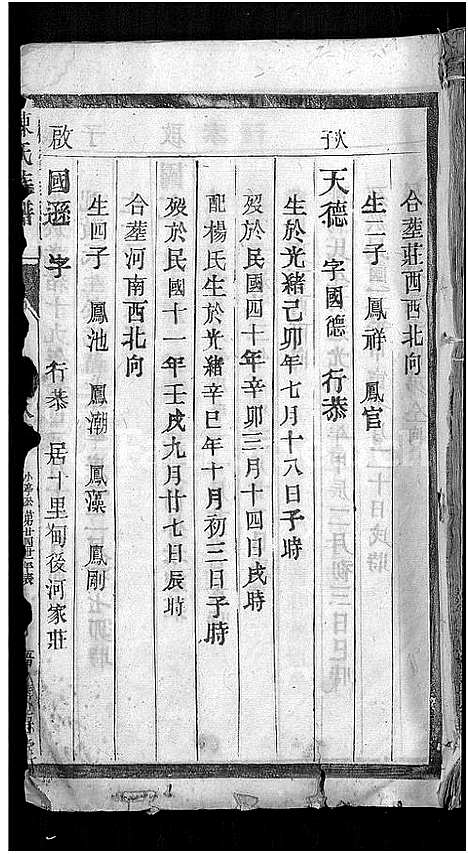 合塟莊西西北向
生二子 鳳祥 鳳官
天德 字國德 行恭
生於光緒己卯年七月十八日子時
歿於民國四十年辛卯三月十四日戌時
配楊氏生於光緒辛巳年十月初三日子時
歿於民國十一年壬戌九月廿七日辰時
合塟河南西北向
生四子 鳳池 鳳潮 鳳藻 鳳剛
啟
國遜 字 行恭 居十里甸後河家莊
陳氏族譜
第廿四世年表